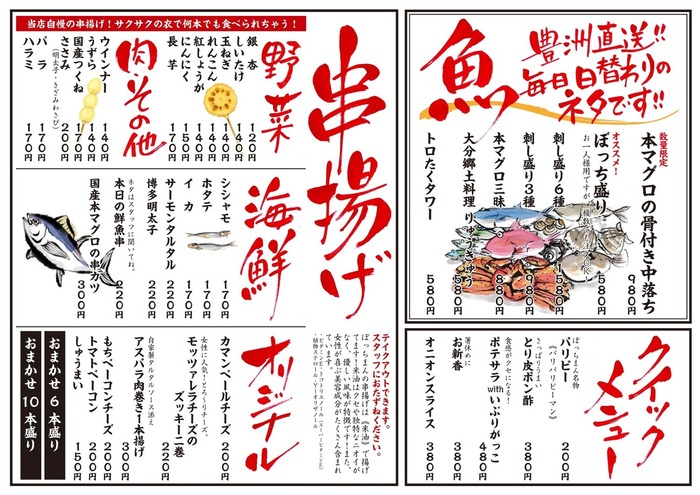 当店自慢の串揚げ!サクサクの衣で何本でも食べられちゃう!
串揚げ
野菜
銀杏 120円
しいたけ
玉ねぎ
れんこん
紅しょうが 140円
にんにく 150円
長芋 170円
肉・その他
ウインナー 140円
うずら 140円
国産つくね 170円
ささみ 200円
(明太子・きざみわさび)
バラ 170円
ハラミ 170円
海鮮
シシャモ 170円
ホタテ 170円
イカ 170円
サーモンタルタル 220円
博多明太子 220円
ネタはスタッフに聞いてね。
本日の鮮魚串 220円
国産本マグロの串カツ 300円
オリジナル
カマンベールチーズ 200円
女性に人気!とろ〜りチーズ。
モッツァレラチーズの
ズッキーニ巻 220円
自家製タルタルソース添え
アスパラ肉巻き1本揚げ 300円
もちベーコンチーズ 200円
トマトベーコン 200円
しゅうまい 150円
おまかせ6本盛り
おまかせ10本盛り
テイクアウトできます。
スタッフにおたずねください。
ぼっちまんの串揚げは《米油》で揚げ
てます!米油はクセや独特なニオイが
なく、優しい風味が特徴です!また、
女性が喜ぶ美容成分がたくさん含まれ
魚
豊洲直送!!
毎日日替わりの
ネタです!!
数量限定
本マグロの骨付き中落ち 980円
オススメ!
ぼっち盛り 580円
お一人様用ですが
刺し盛り6種
刺し盛り3種 980円
本マグロ三昧
大分郷土料理 りゅうきゅう 580円
トロたくタワー 580円
クイックメニュー
ぼっちまん名物
バリピー 200円
(バリバリピーマン)
さっぱりうまい
とり皮ポン酢 380円
食感がクセになる!
ポテサラwithいぶりがっこ 480円
箸休めに
お新香 380円
オニオンスライス 380円